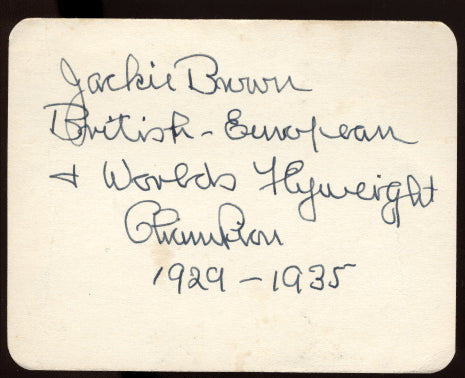 Jackie Brown
British - European
+ Worlds Flyweight
Champion
1929 - 1935